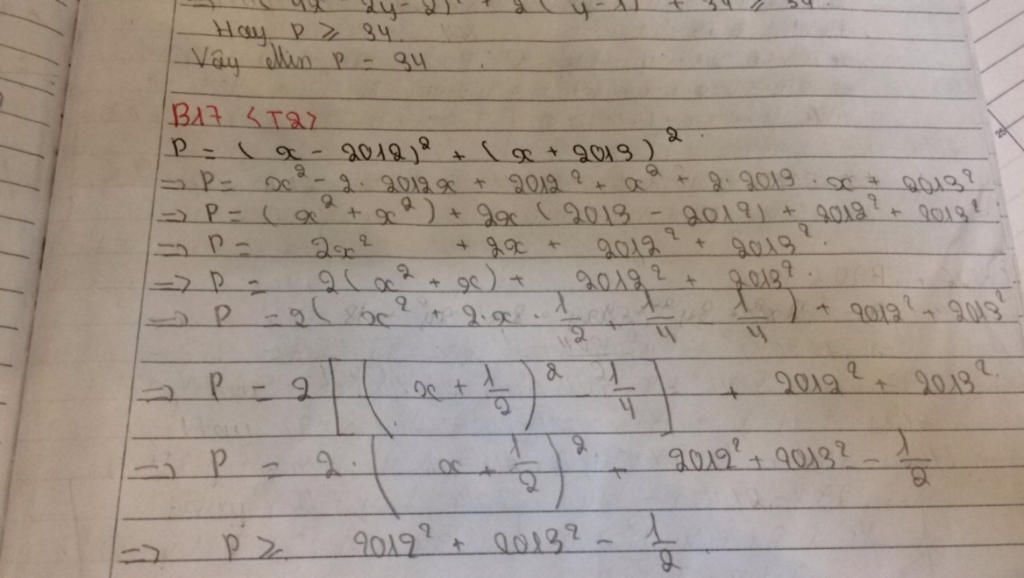 => (4x - 2y - 2)² + 2(y - 1) + 34 ≥ 34
Hay P ≥ 34.
Vậy Min P = 34.
B17 <T2>
P = (x - 2012)² + (x + 2013)².
=> P = x² - 2.2012x + 2012² + x² + 2.2013.x + 2013²
=> P = (x² + x²) + 2x(2013 - 2012) + 2012² + 2013²
=> P = 2x² + 2x + 2012² + 2013².
=> P = 2(x² + x) + 2012² + 2013².
=> P = 2(x² + 2.x.1/2 + 1/4 - 1/4) + 2012² + 2013²
=> P = 2[(x + 1/2)² - 1/4] + 2012² + 2013².
=> P = 2.(x + 1/2)² + 2012² + 2013² - 1/2
=> P ≥ 2012² + 2013² - 1/2